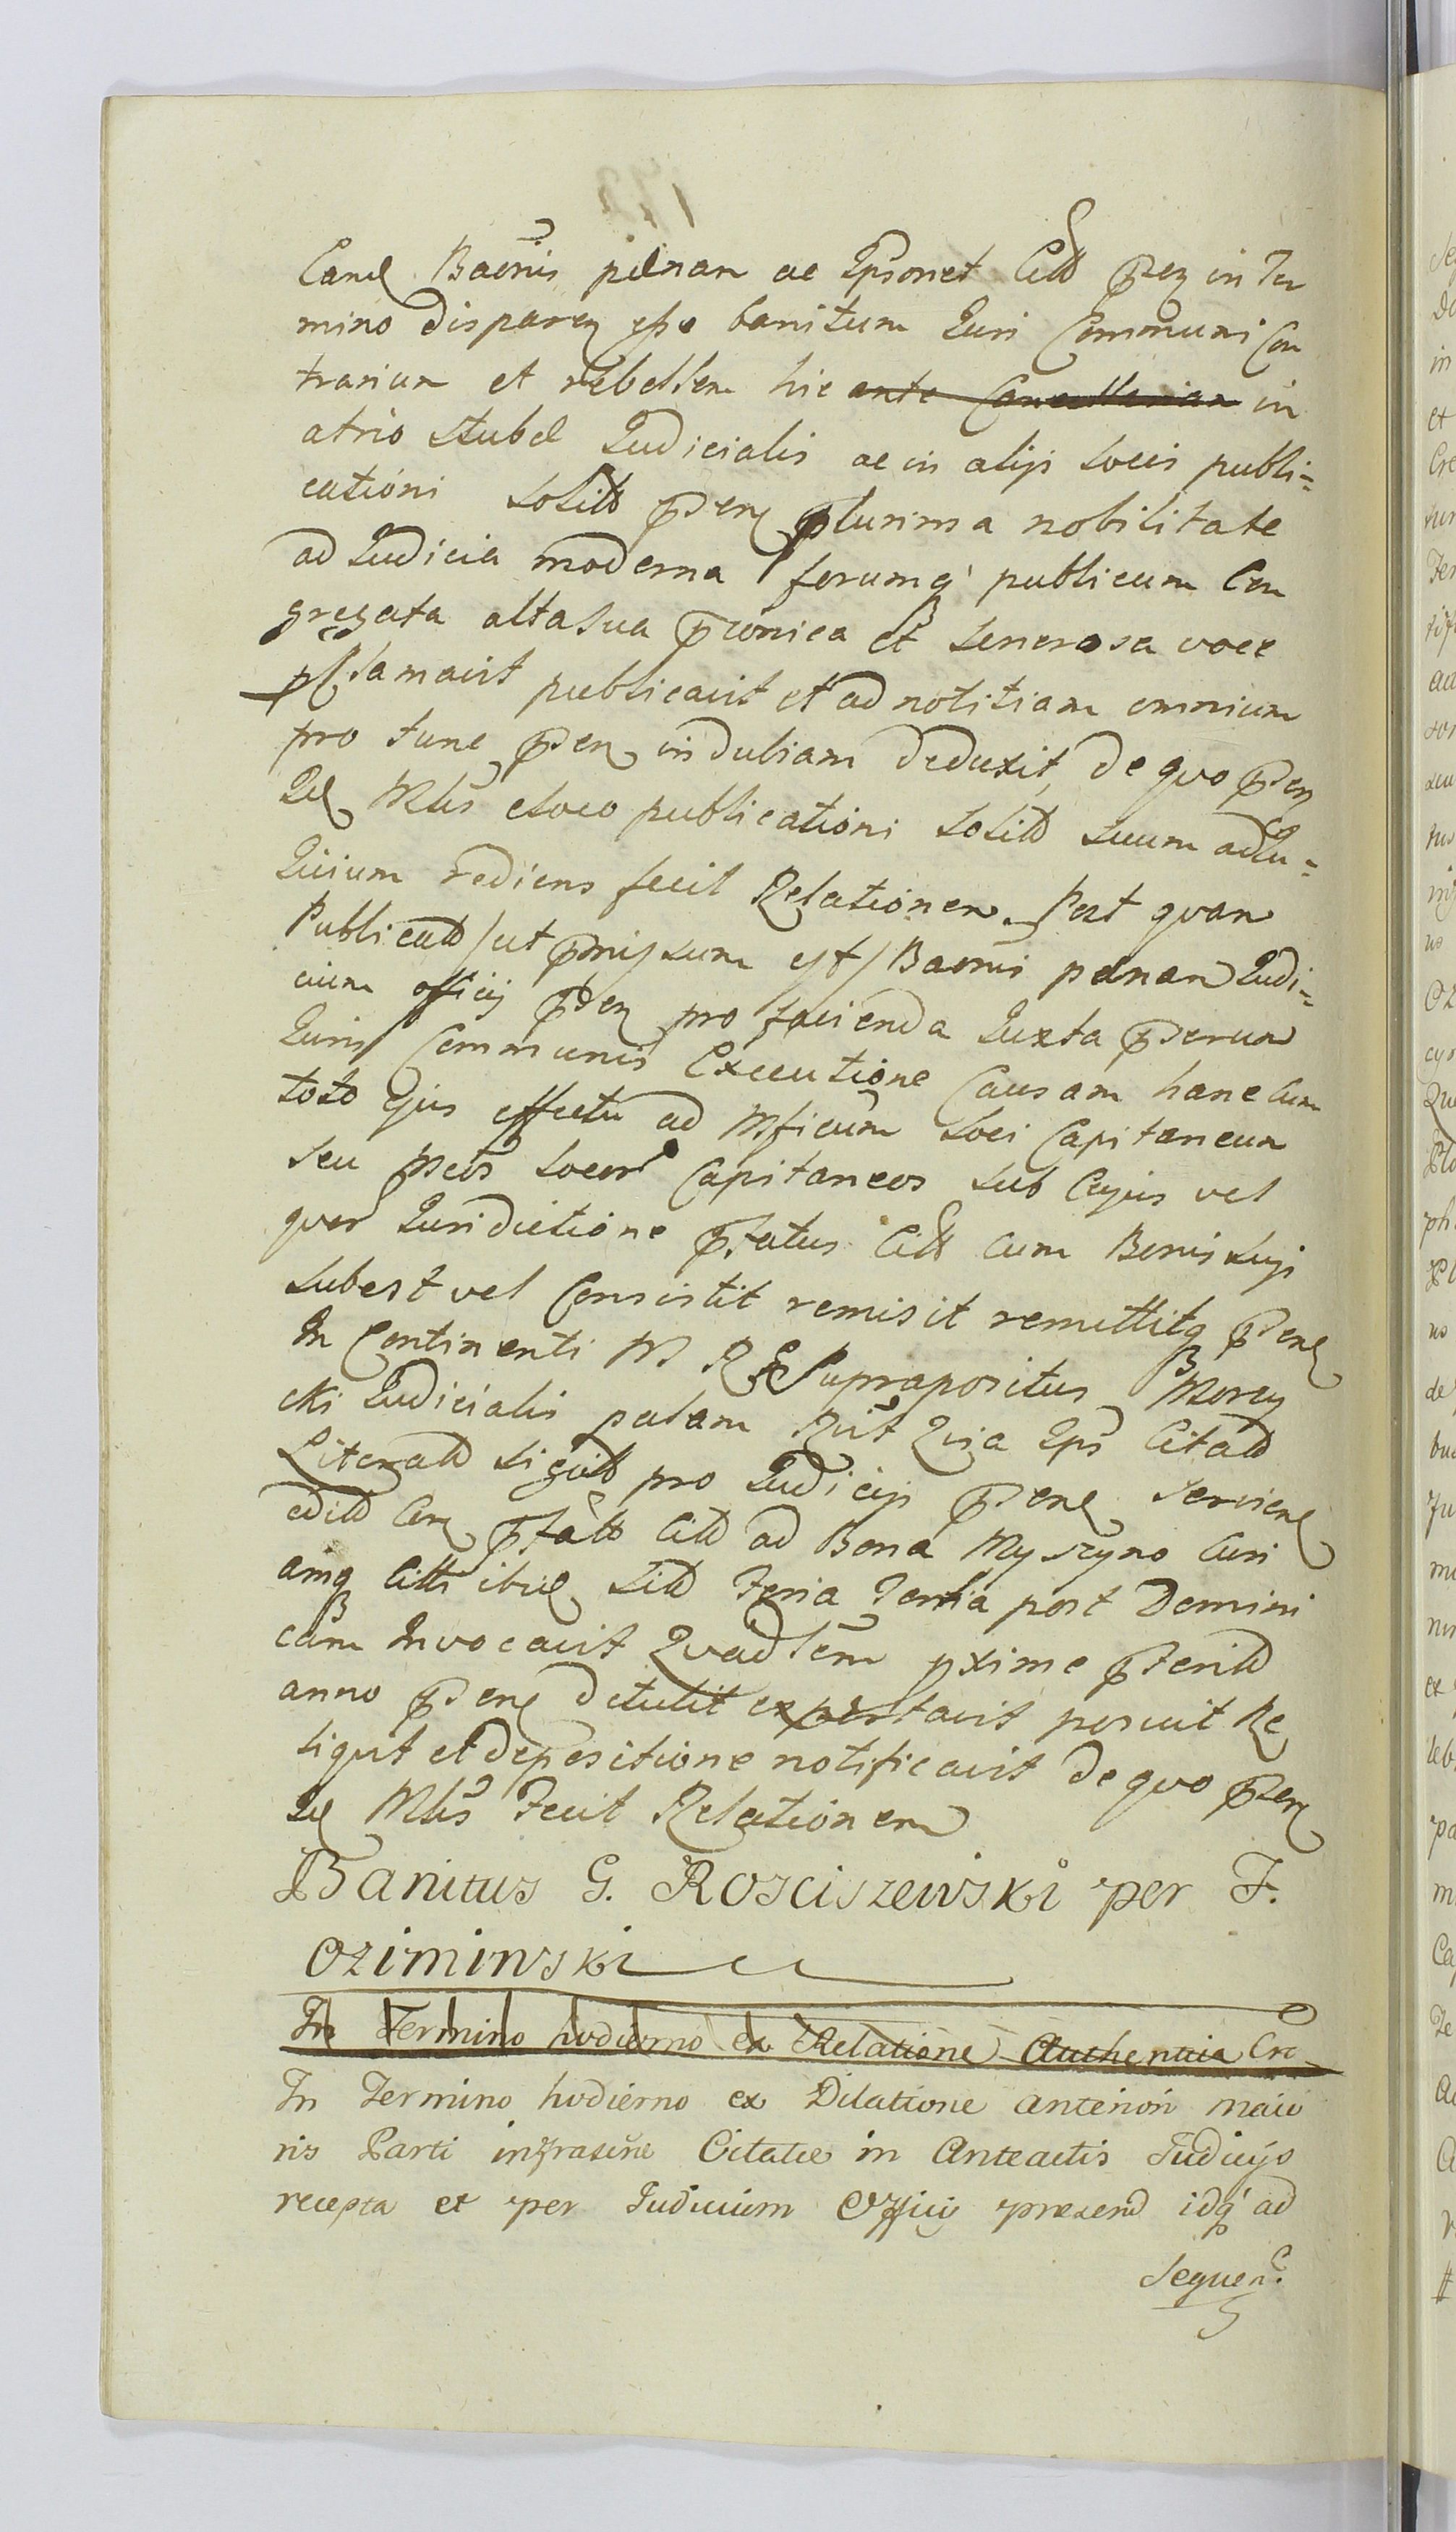 Baōnis pænam ac Ipsomet Citt̄o p̄sen in Ter
mino disparen ipso banitum Juri Communi Con
trarium et rebellem hic ante Cancellariam in
atrio Stubæ Judicialis ac in alijs locis publi=
cationi solitt̄ p̄sen plurima nobilitate
ad Judicia moderna forumq̨ publicum Con
gregata alta sua p̄conica et Senerosa voce
p̄clamavit publicavit et ad notitiam omnium
pro tunc p̄sen in dubiam deduxit, de quo p̄sen
Id Mtis e loco publicationi solitt̄ suum ad Ju=
dicium rediens fecit Relationem. Post quam
Publicatt̄ / ut p̄missum est / Baōnis pænam Judi=
cium officij p̄sen pro facienda Juxta p̄serum
Juris Communis Executione Causam hanc Cum
toto Ejus effectu ad Mficum loci Capitaneum
seu Mcos locor Capitaneos sub Cujus vel
quor Jurisdictione p̄fatus Citt̄ Cum Bonis suis
subest vel Consistit remisit remittitq̨ p̄sen
In Continenti M R Suprapositus
cki Judicialis palam Rūt Quia Ips Citatt̄
Literatt̄ sigitt̄ pro Judicijs p̄sen servien
editt̄ Con p̄fatt̄ Citt̄ ad Bona Myszyno Curi
amq̨ Citti ibid sitt̄ Feria Tertia post Domini
cam Invocavit Quadlēm pxime p̄teritt̄
anno p̄sen detulit exportavit posuit Re
liquit et depositione notificavit de quo p̄sen
Id Mtis Fecit Relationem
Banitus G. Rosciszewski per F.
Oziminski
In Termino hodierno ex Relatione Authentica Cre
In Termino hodierno ex Dilatione anteriori maio
ris Parti infrascne Citatæ in Anteactis Judicijs
recepta et per Judicium Officij presend idq̨ ad
Sequen: